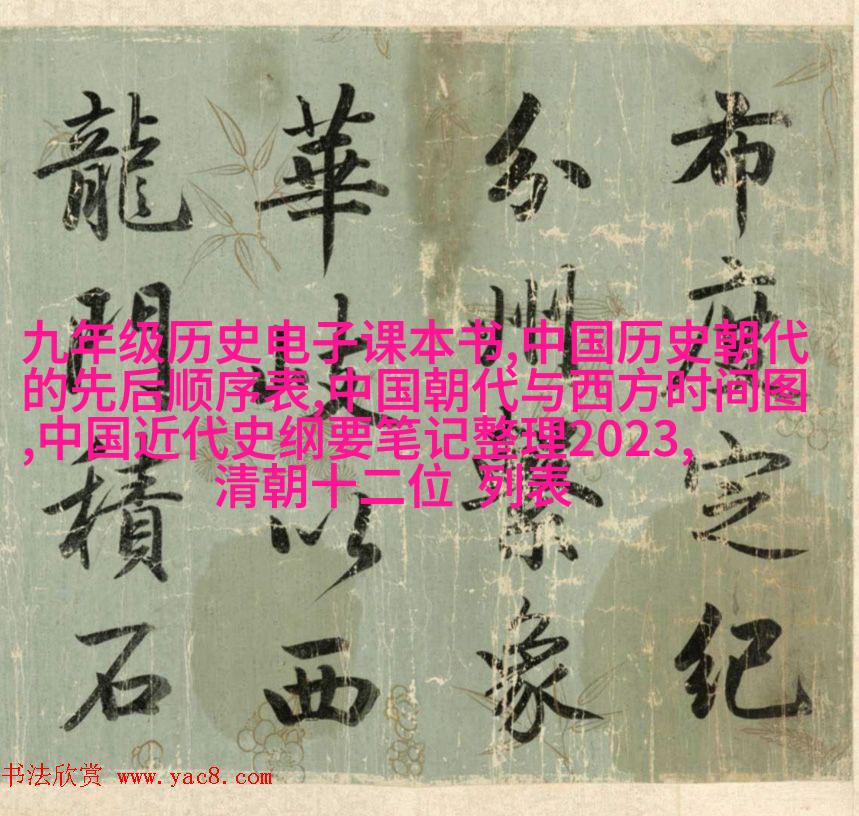 布度定紀
分州繫象
華岐以西
龍門積石
九年级历史电子课本书,中国历史朝代
的先后顺序表,中国朝代与西方时间图
,中国近代史纲要笔记整理2023,
清朝十二位 列表
书法欣赏 www.yac8.com